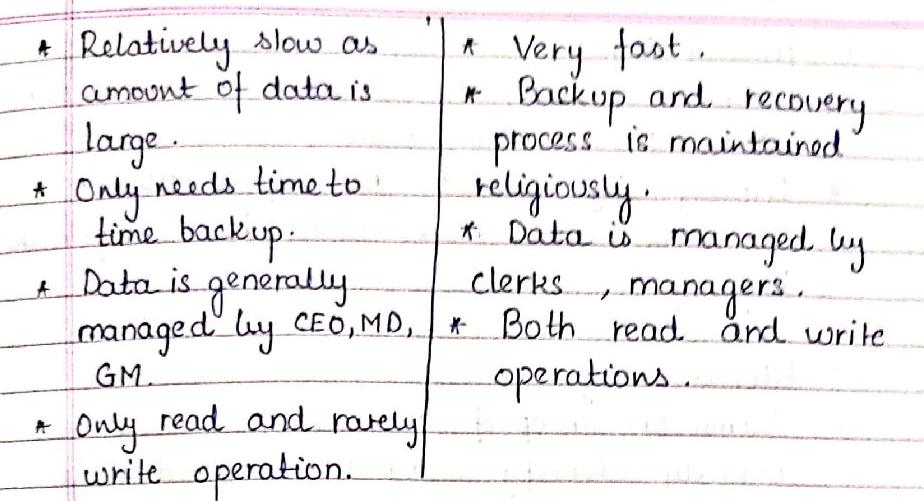 * Relatively slow as
amount of data is
large.
* Only needs time to
time backup.
* Data is generally
managed by CEO, MD,
GM.
* Only read and rarely
write operation.
* Very fast.
* Backup and recovery
process is maintained
religiously.
* Data is managed by
clerks, managers.
* Both read and write
operations.